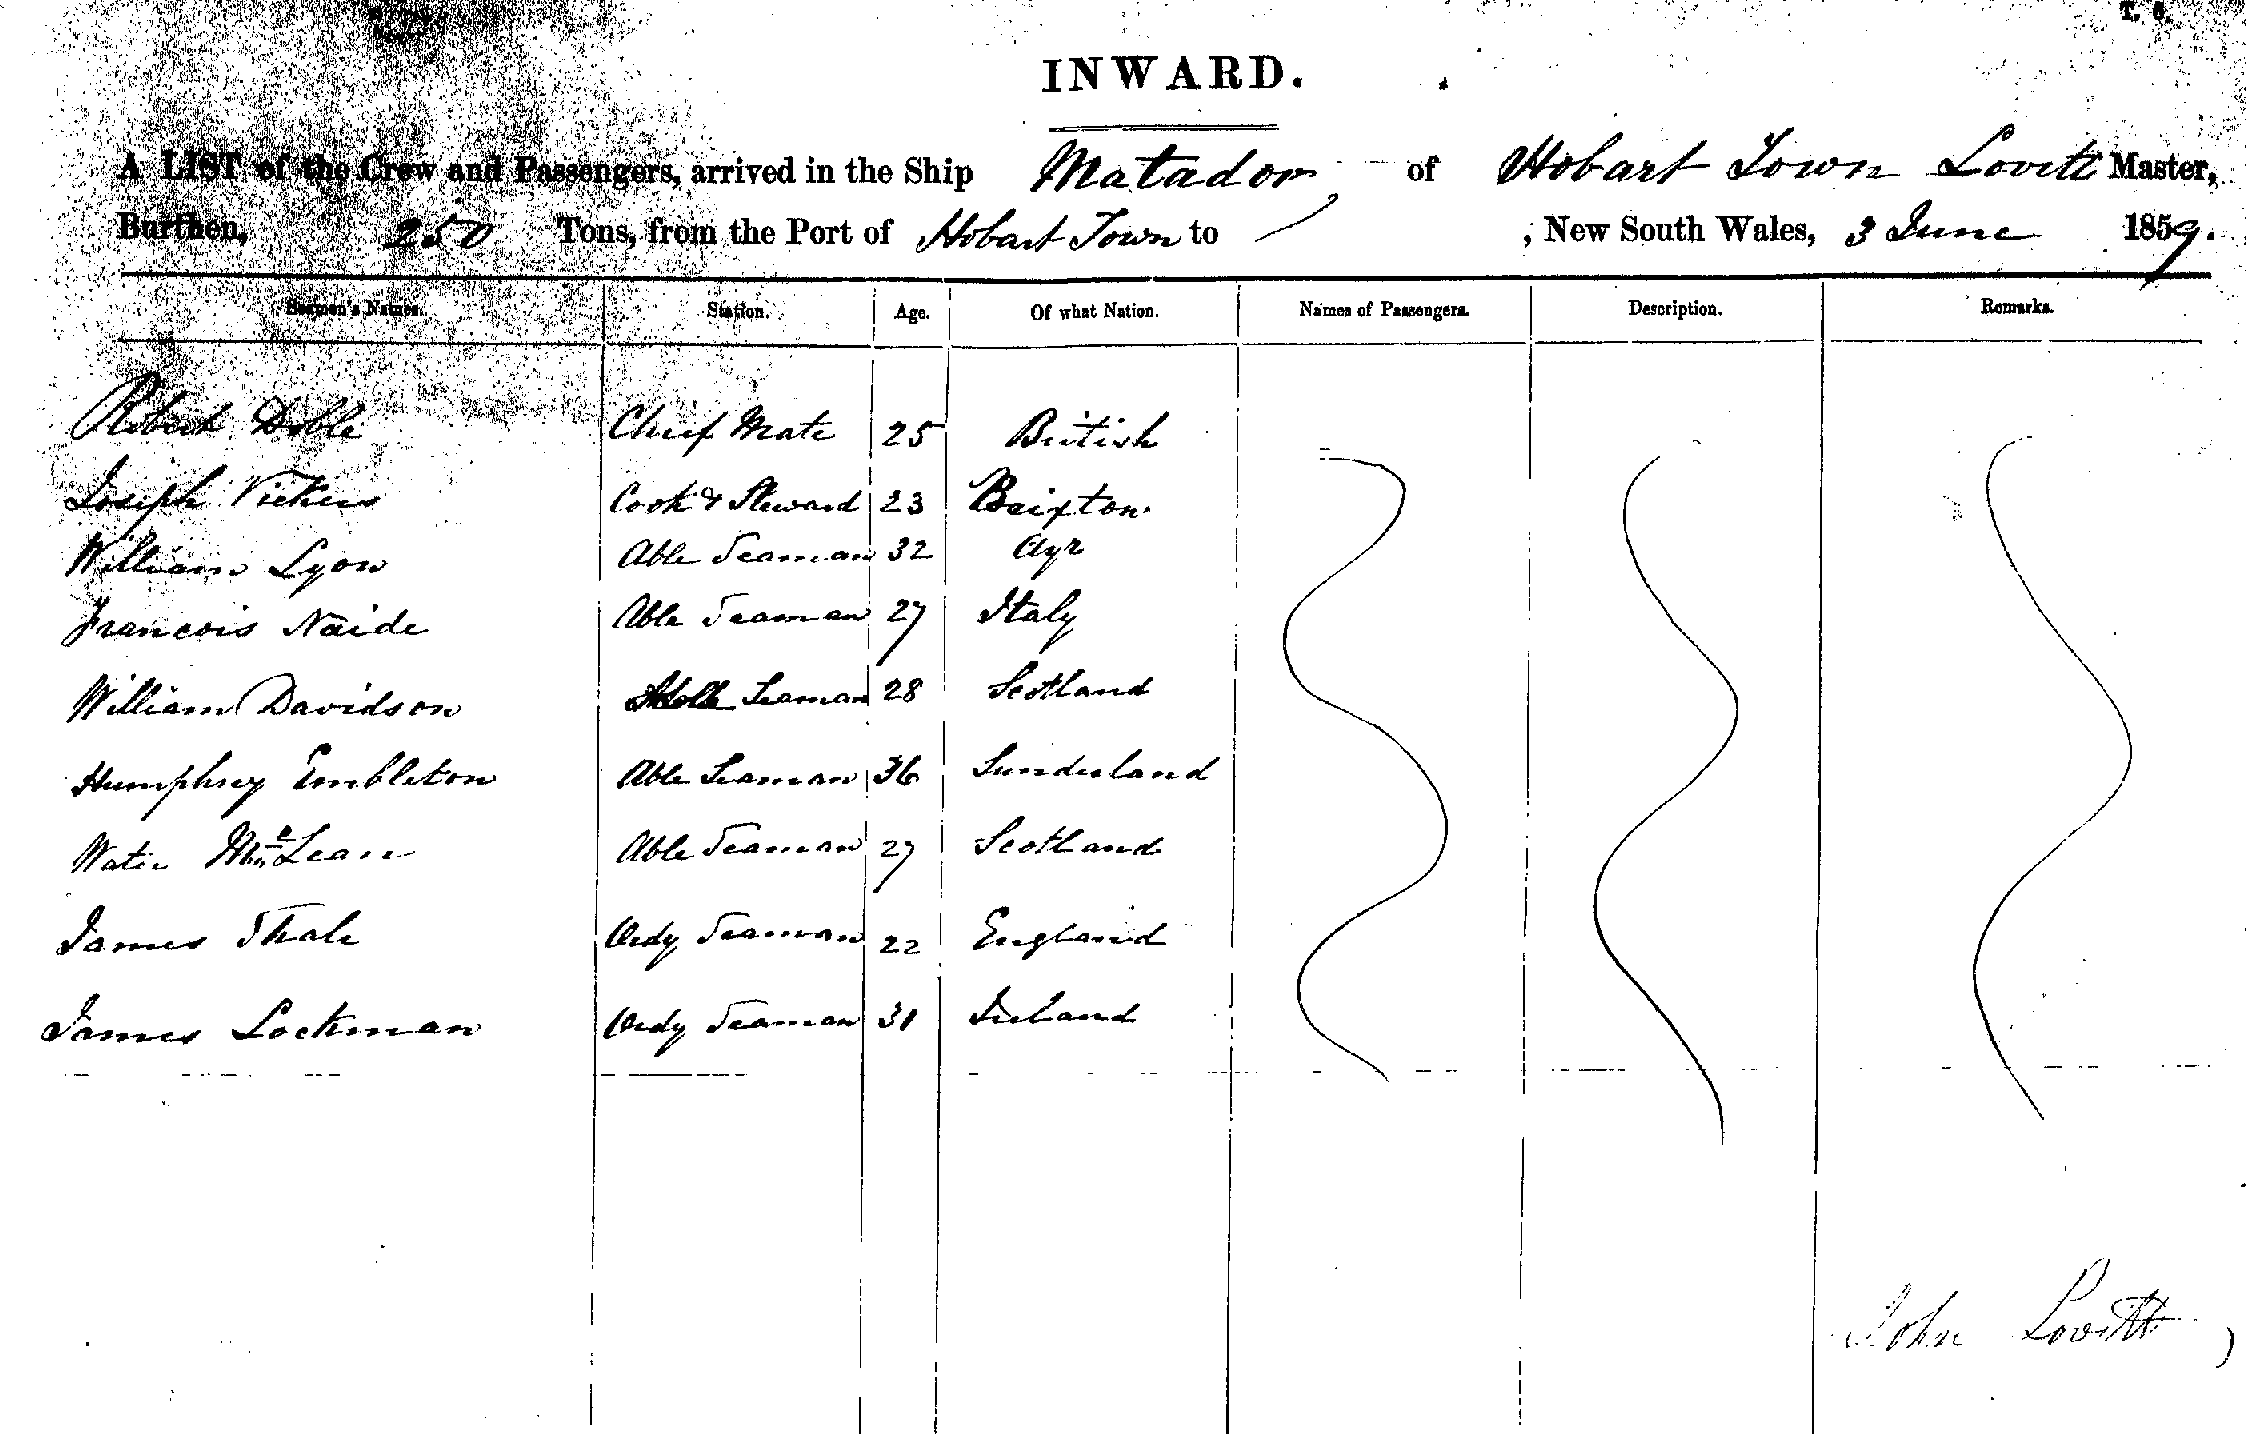 T. 6.
INWARD.
A LIST of the Crew and Passengers, arrived in the Ship Matador, of Hobart Town Lovitt Master,
Burthen, 250 Tons, from the Port of Hobart Town to , New South Wales, 3 June 1859.
Seamen's Names. Station. Age. Of what Nation. Names of Passengers. Description. Remarks.
Robert Doble Chief Mate 25 British
Joseph Vickers Cook & Steward 23 Brixton
William Lyon Able Seaman 32 Ayr
Francois Naide Able Seaman 27 Italy
William Davidson Able Seaman 28 Scotland
Humphrey Embleton Able Seaman 36 Sunderland
Water McLean Able Seaman 27 Scotland
James Thale Ordy Seaman 22 England
James Lockman Ordy Seaman 31 Ireland
John Lovitt